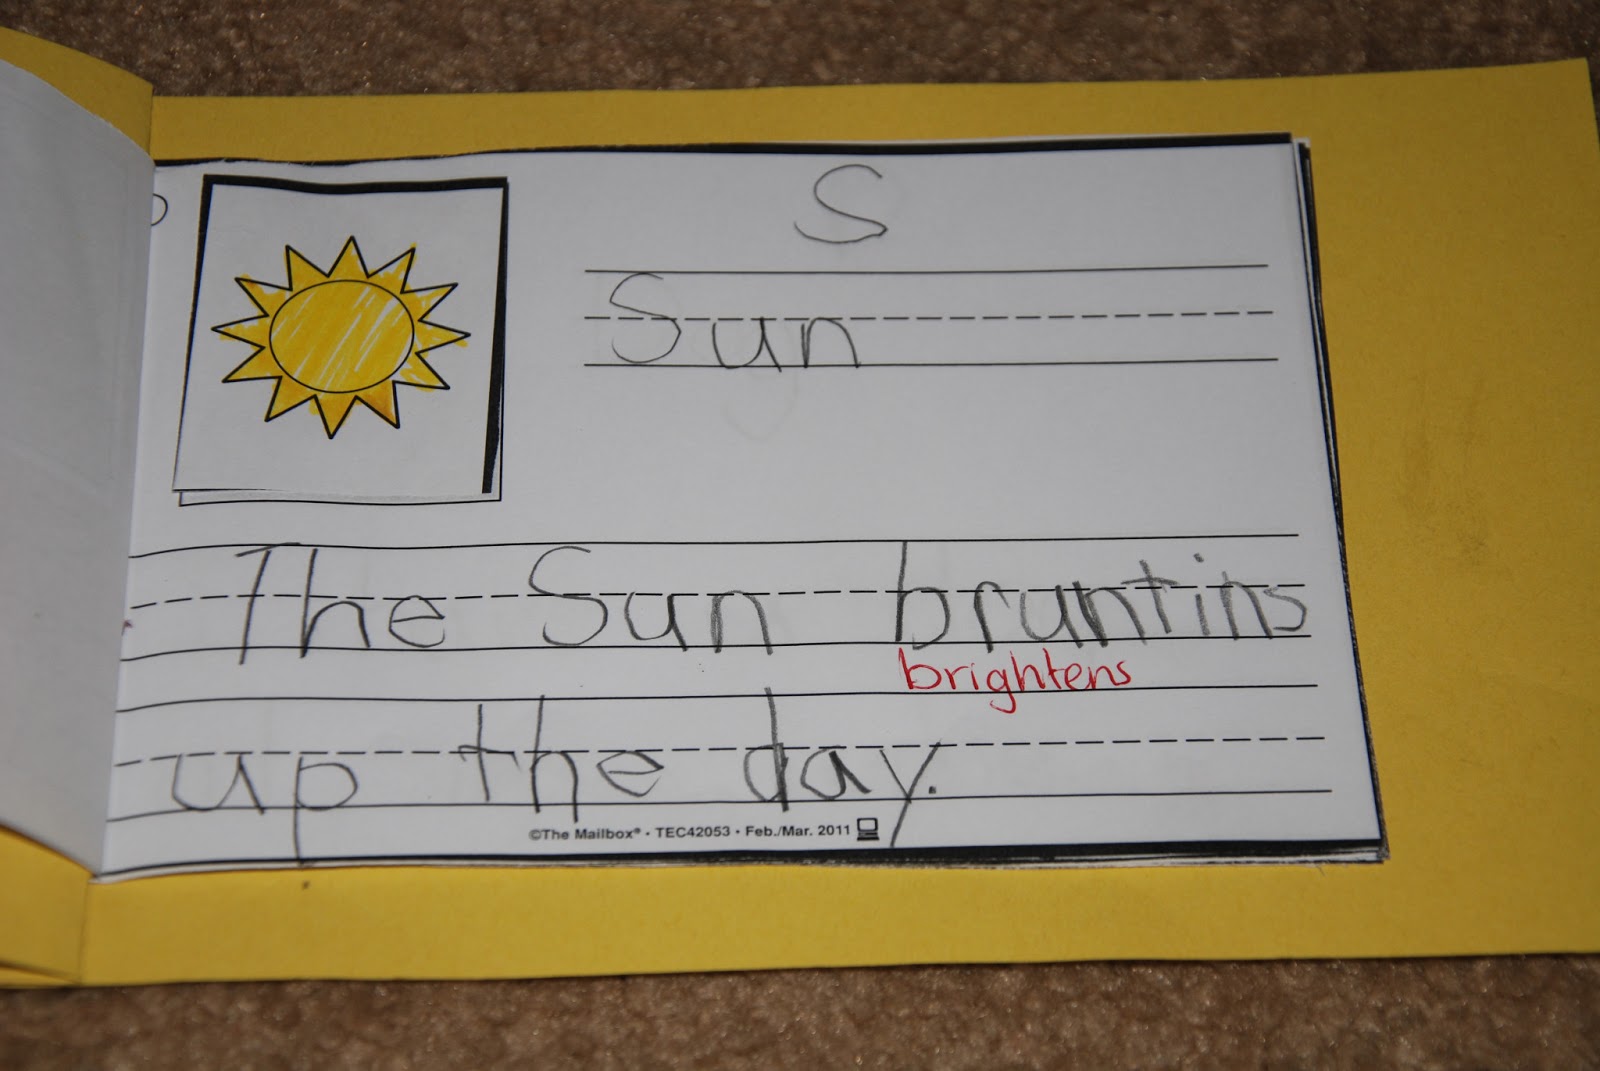 S
Sun
The Sun bruntins
brightens
up the day.
©The Mailbox® • TEC42053 • Feb./Mar. 2011